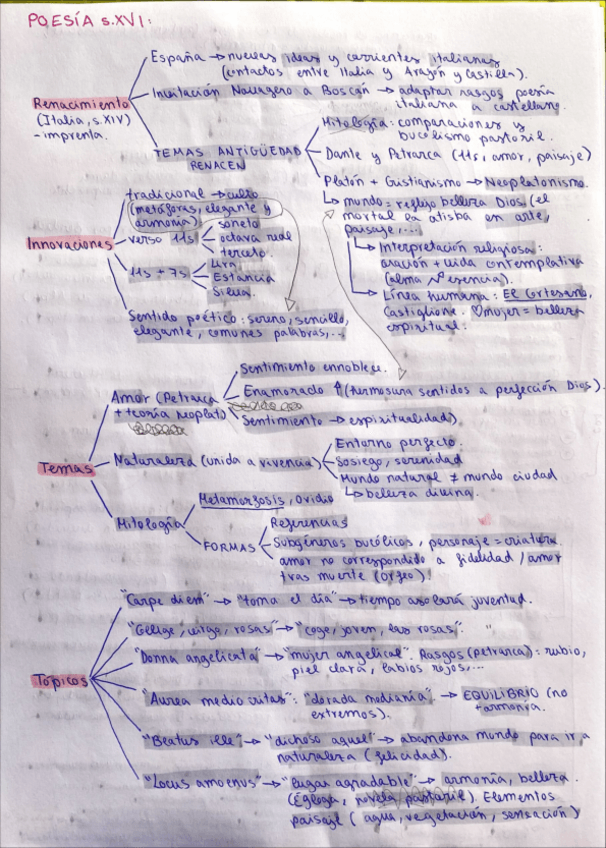 POESÍA s.XVI:
España → nuevas ideas y corrientes italianas
(contactos entre Italia y Aragón y Castilla).
Renacimiento
(Italia, s.XIV)
- imprenta.
Invitación Navagero a Boscán → adaptar rasgos poesía
italiana a castellano.
TEMAS ANTIGÜEDAD
RENACEN
Mitología: comparaciones y
bucolismo pastoril.
Dante y Petrarca (11s, amor, paisaje)
Platón + Cristianismo → Neoplatonismo.
↳ mundo = reflejo belleza Dios (el
mortal la atisba en arte,
paisaje,...
↳ Interpretación religiosa:
oración + vida contemplativa
(alma esencia).
↳ Línea humana: El Cortesano,
Castiglione. ♡mujer = belleza
espiritual.
Innovaciones
tradicional → culto
(metáforas, elegante y
armonía)
verso 11s
soneto
octava real
terceto.
11s + 7s
Lira
Estancia
Silva.
Sentido poético: sereno, sencillo,
elegante, comunes palabras,...
Temas
Amor (Petrarca
+ teoría neoplat)
Sentimiento ennoblece.
Enamorado ↑ (hermosura sentidos a perfección Dios).
Sentimiento → espiritualidad)
Naturaleza (unida a vivencia)
Entorno perfecto.
Sosiego, serenidad
Mundo natural ≠ mundo ciudad
↳ belleza divina.
Mitología
Metamorfosis, Ovidio
FORMAS
Referencias
Subgéneros bucólicos, personaje = criatura.
amor no correspondido a fidelidad / amor
tras muerte (Orfeo).
Tópicos
"Carpe diem" → "toma el día" → tiempo asolará juventud.
"Collige, virgo, rosas" → "coge, joven, las rosas".
"Donna angelicata" → "mujer angelical". Rasgos (petrarca): rubio,
piel clara, labios rojos,...
"Aurea mediocritas": "dorada medianía" → EQUILIBRIO (no
extremos).
+armonía.
"Beatus ille" → "dichoso aquel" → abandona mundo para ir a
naturaleza (felicidad).
"Locus amoenus" → "lugar agradable" → armonía, belleza.
(Égloga, novela pastoril). Elementos
paisaje (agua, vegetación, sensación)